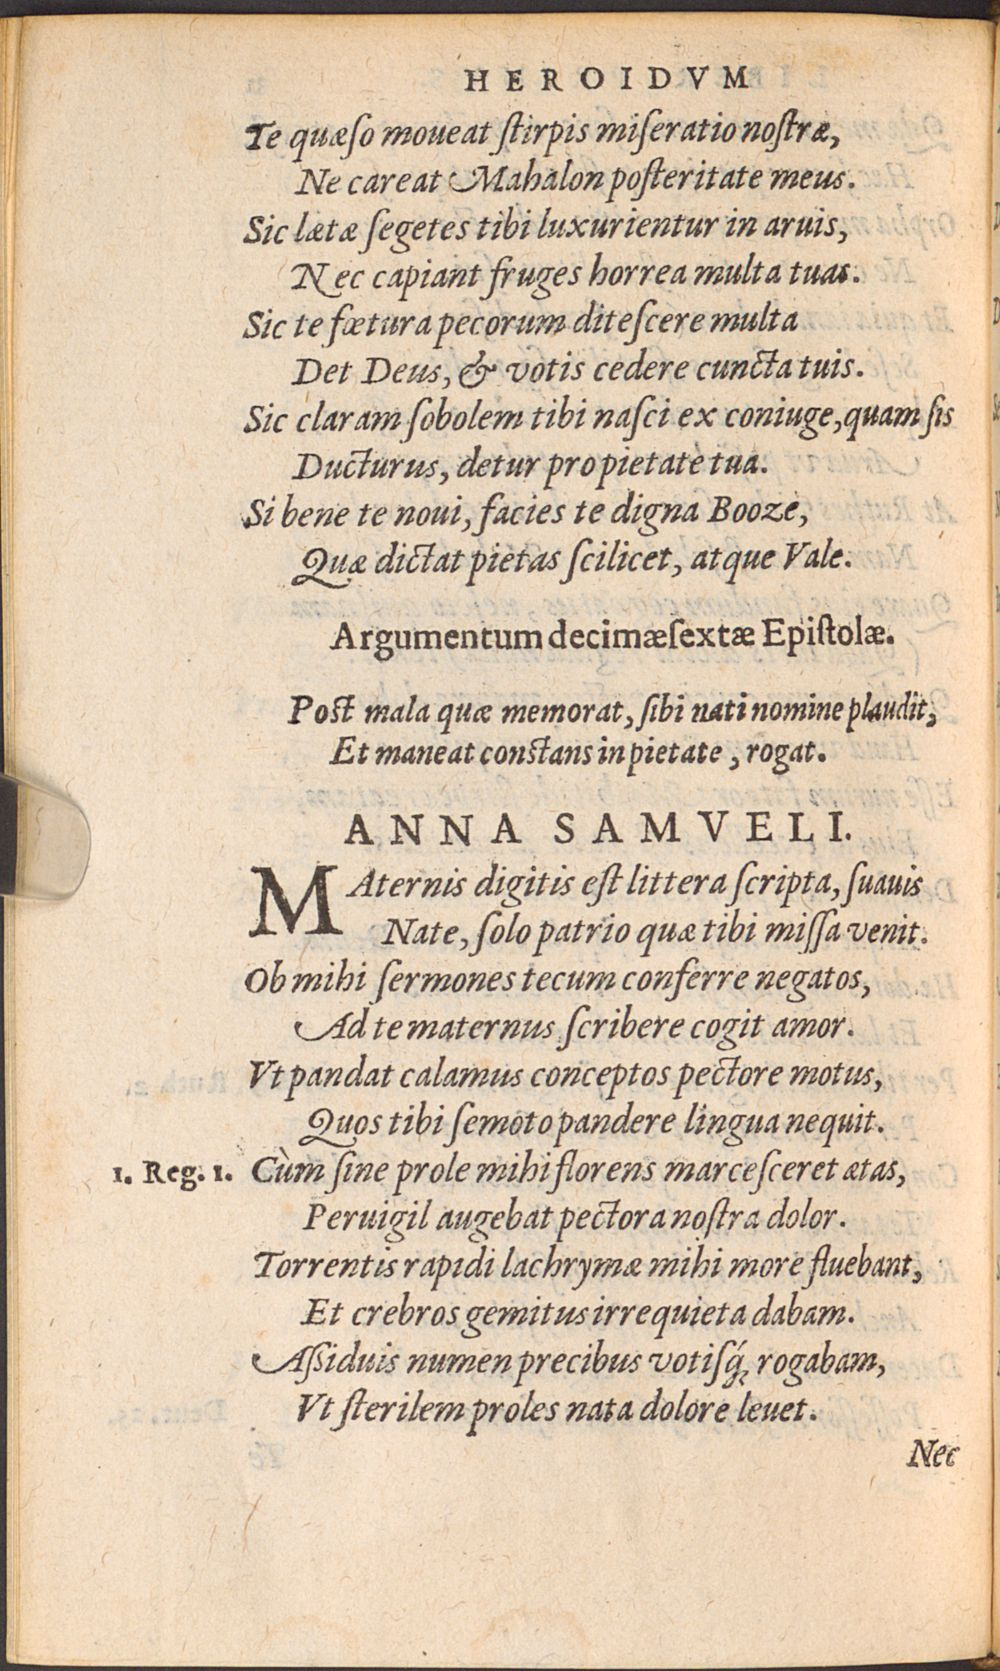 HEROIDVM
Te quæſo moueat ſtirpis miſeratio noſtræ,
Ne careat Mahalon poſteritate meus.
Sic lætæ ſegetes tibi luxurientur in aruis,
Nec capiant fruges horrea multa tuas.
Sic te fœtura pecorum diteſcere multa
Det Deus, & votis cedere cuncta tuis.
Sic claram ſobolem tibi naſci ex coniuge, quam ſis
Ducturus, detur pro pietate tua.
Si bene te noui, facies te digna Booze,
Quæ dictat pietas ſcilicet, atque Vale.
Argumentum decimæſextæ Epiſtolæ.
Poſt mala quæ memorat, ſibi nati nomine plaudit,
Et maneat conſtans in pietate, rogat.
ANNA SAMVELI.
MAternis digitis eſt littera ſcripta, ſuauis
Nate, ſolo patrio quæ tibi miſſa venit.
Ob mihi ſermones tecum conferre negatos,
Ad te maternus ſcribere cogit amor.
Vt pandat calamus conceptos pectore motus,
Quos tibi ſemoto pandere lingua nequit.
1. Reg. 1. Cùm ſine prole mihi florens marceſceret ætas,
Peruigil augebat pectora noſtra dolor.
Torrentis rapidi lachrymæ mihi more fluebant,
Et crebros gemitus irrequieta dabam.
Aſsiduis numen precibus votiſq́; rogabam,
Vt ſterilem proles nata dolore leuet.
Nec